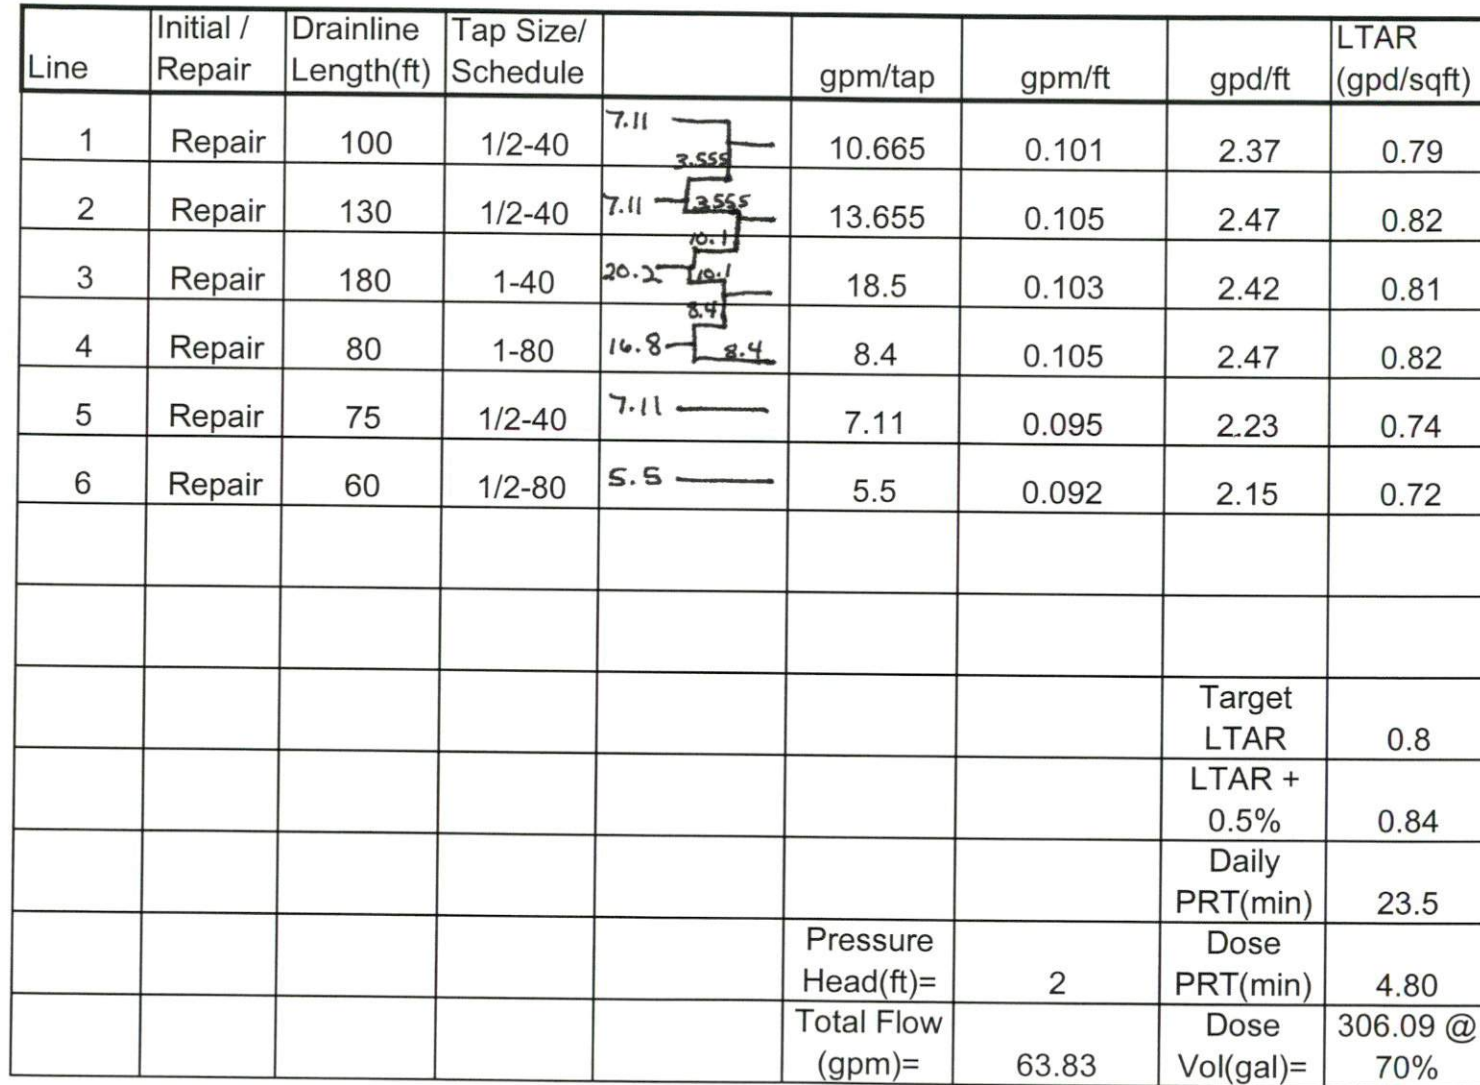 Line Initial / Repair Drainline Length(ft) Tap Size/ Schedule gpm/tap gpm/ft gpd/ft LTAR (gpd/sqft)
1 Repair 100 1/2-40 7.11 3.555 10.665 0.101 2.37 0.79
2 Repair 130 1/2-40 7.11 3.555 10.1 13.655 0.105 2.47 0.82
3 Repair 180 1-40 20.2 10.1 8.4 18.5 0.103 2.42 0.81
4 Repair 80 1-80 16.8 8.4 8.4 0.105 2.47 0.82
5 Repair 75 1/2-40 7.11 7.11 0.095 2.23 0.74
6 Repair 60 1/2-80 5.5 5.5 0.092 2.15 0.72
Target LTAR 0.8
LTAR + 0.5% 0.84
Daily PRT(min) 23.5
Pressure Head(ft)= 2 Dose PRT(min) 4.80
Total Flow (gpm)= 63.83 Dose Vol(gal)= 306.09 @ 70%